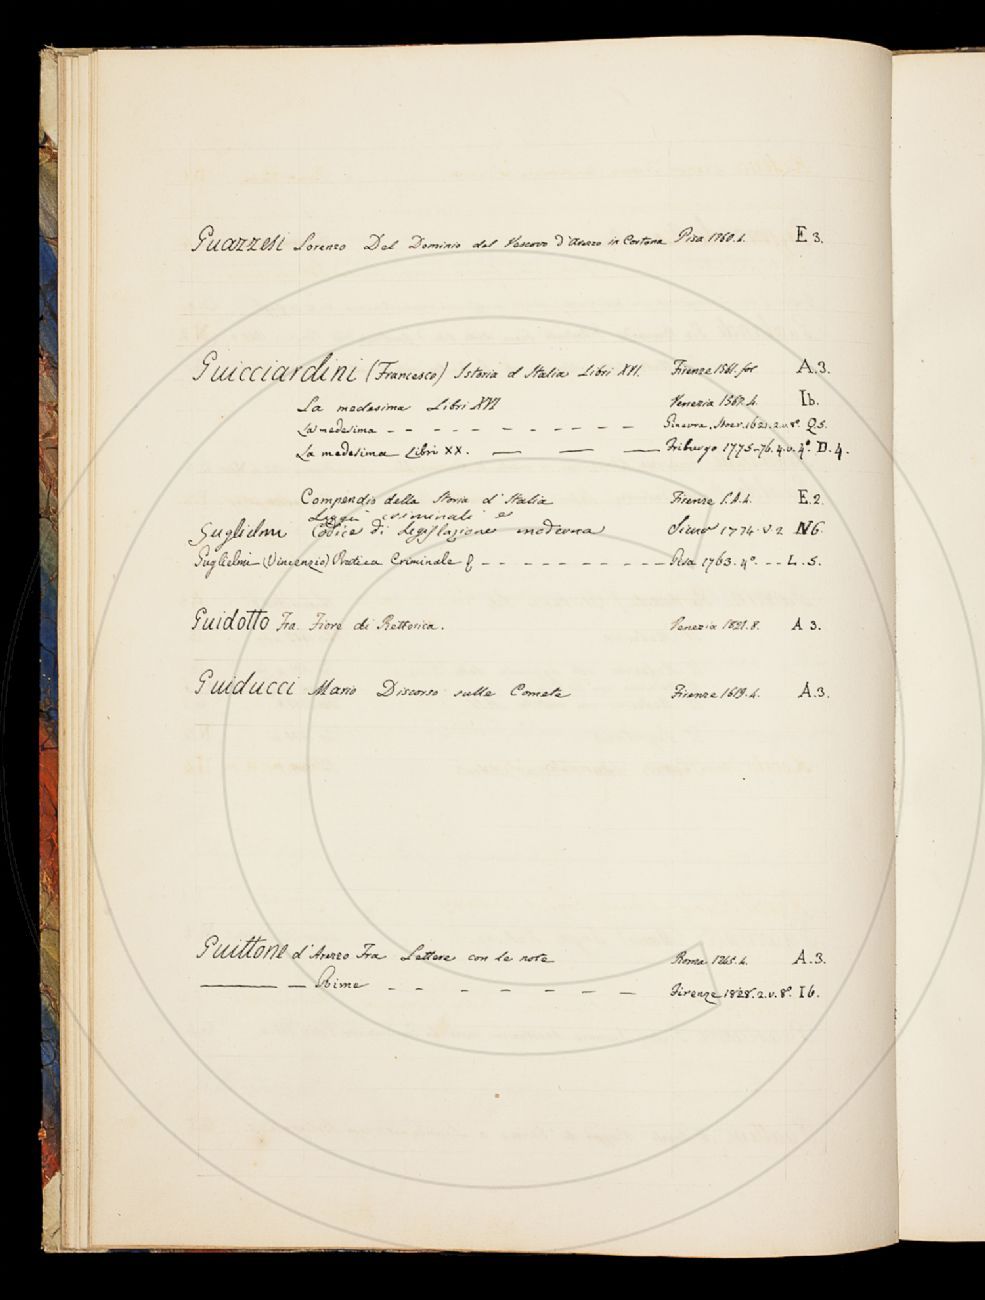 Guazzesi Lorenzo Del Dominio del Vescovo d'Arezzo in Cortona Pisa 1760. 4. E 3.
Guicciardini (Francesco) Istoria d'Italia Libri XVI. Firenze 1561. fol A. 3.
La medesima Libri XVI Venezia 1567. 4. Ib.
La medesima - - - - - - - - - - Ginevra. Stoer. 1621. 2. v. 8º Q 5.
La medesima Libri XX. — — — Friburgo 1775-76. 4. v. 4º. D. 4.
Compendio della Storia d'Italia Firenze S.A. 4. E. 2.
Leggi criminali e
Guglielmi Codice di Legislazione moderna Siena 1774 V 2 N 6.
Guglielmi (Vincenzio) Pratica Criminale - - - - - - - - - - Pisa 1763. 4º. - - L. 5.
Guidotto Fra Fiore di Rettorica. Venezia 1821. 8. A 3.
Guiducci Mario Discorso sulle Comete Firenze 1619. 4. A. 3.
Guittone d'Arezzo Fra Lettere con le note Roma 1745. 4. A. 3.
——— — Rime - - - - - - - Firenze 1828. 2. v. 8º. I 6.